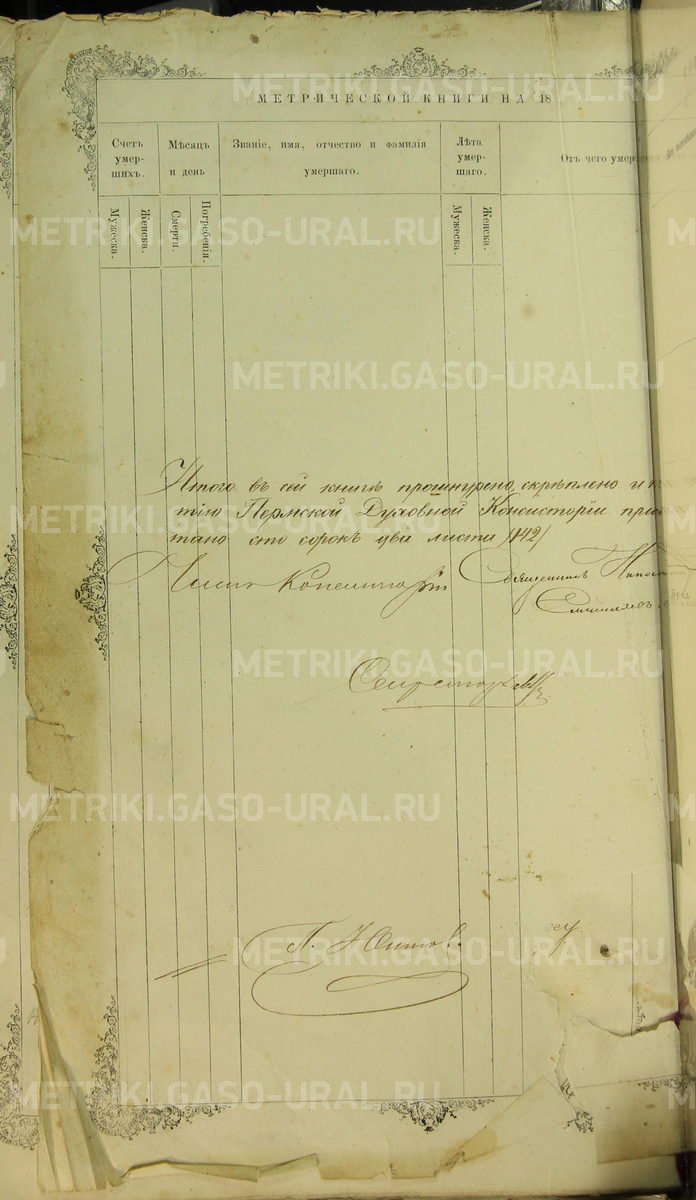 МЕТРИЧЕСКОЙ КНИГИ НА 18
Счетъ умер-шихъ.
Мѣсяцъ и день
Званіе, имя, отчество и фамилія умершаго.
Лѣта умер-шаго.
Отъ чего умер
Мужеска.
Женска.
Смерти.
Погребенія.
Мужеска.
Женска.
Итого въ сей книгѣ прошнурено, скрѣплено и
тію Пермской Духовной Консисторіи при
тано сто сорокъ два листа /142/
Членъ Консисторіи
Священникъ
Смышляевъ
Секретарь
METRIKI.GASO-URAL.RU
METRIKI.GASO-URAL.RU
METRIKI.GASO-URAL.RU
METRIKI.GASO-URAL.RU
METRIKI.GASO-URAL.RU
METRIKI.GASO-URAL.RU
METRIKI.GASO-URAL.RU
METRIKI.GASO-URAL.RU